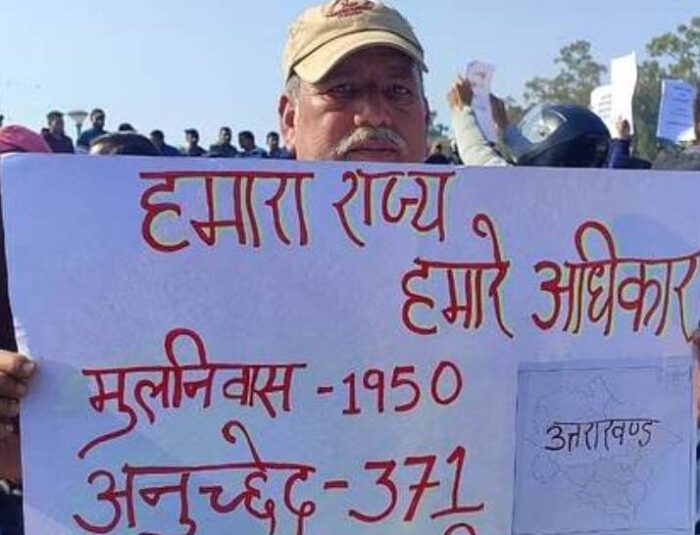 हमारा राज्य
हमारे अधिकार
मुलनिवास -1950
उत्तराखण्ड
अनुच्छेद-371